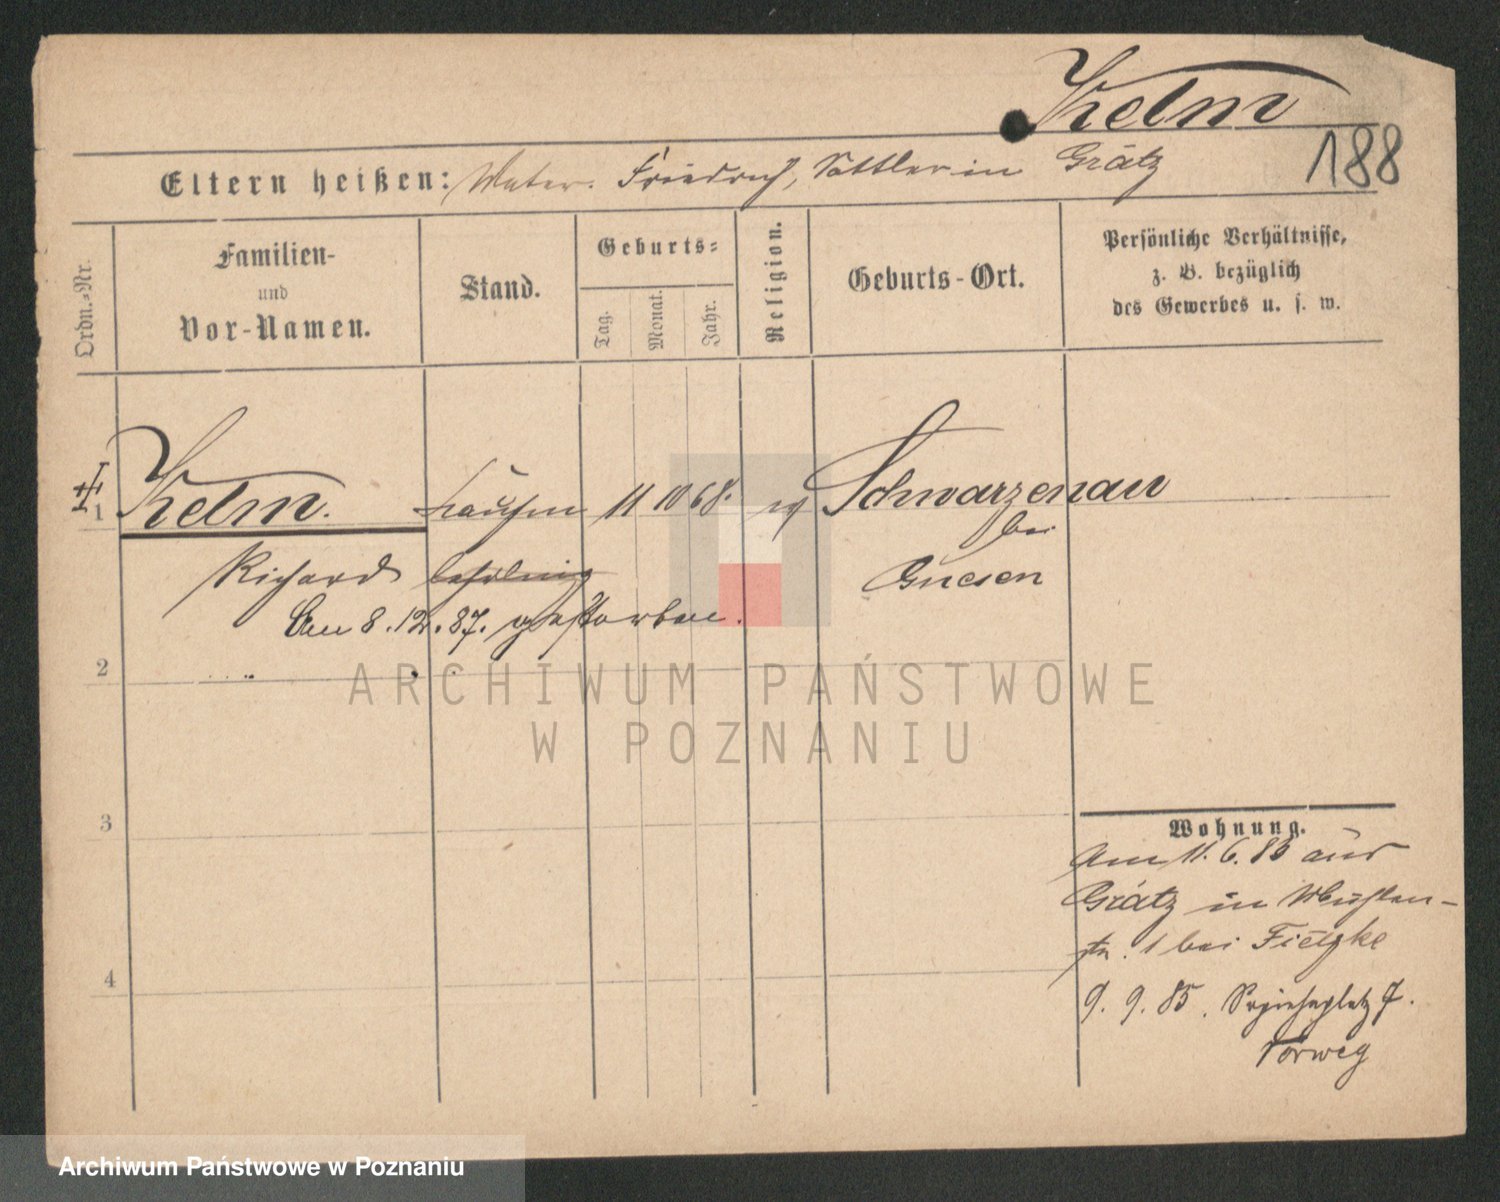 Kelm
188
Eltern heißen: Vater. Friedrich, Sattler in Grätz
Ordn.-Nr.
Familien-
und
Vor-Namen.
Stand.
Geburts-
Tag.
Monat.
Jahr.
Religion.
Geburts-Ort.
Persönliche Verhältnisse,
z. B. bezüglich
des Gewerbes u. s. w.
1 Kelm. 11 10 68. Schwarzenau
bei
Richard Gnesen
Am 8. 12. 87. gestorben.
2
3
4
Wohnung.
Am 11. 6. 85 aus
Grätz in Mühlen-
str. 1 bei
9. 9. 85. 7.
Vorweg
ARCHIWUM PAŃSTWOWE
W POZNANIU
Archiwum Państwowe w Poznaniu